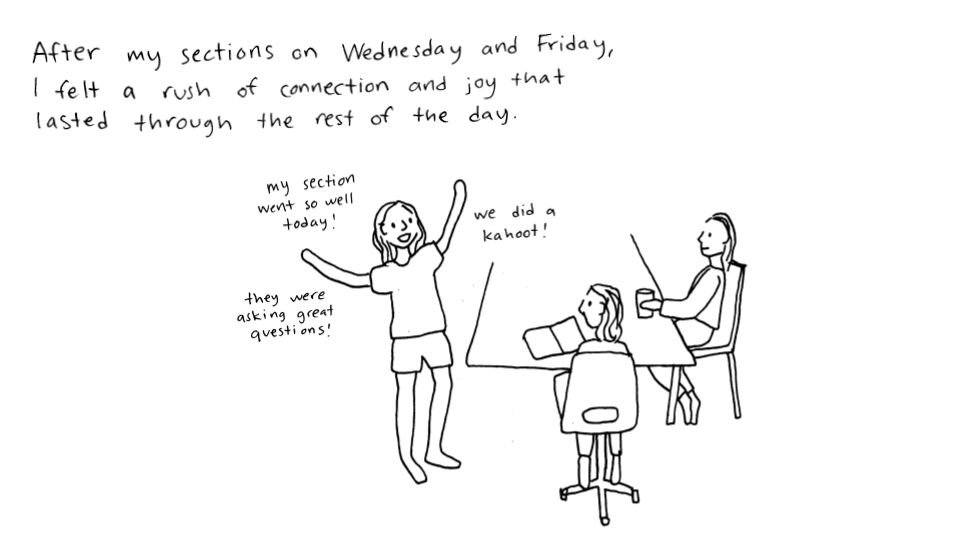 After my sections on Wednesday and Friday,
I felt a rush of connection and joy that
lasted through the rest of the day.
my section
went so well
today!
we did a
kahoot!
they were
asking great
questions!